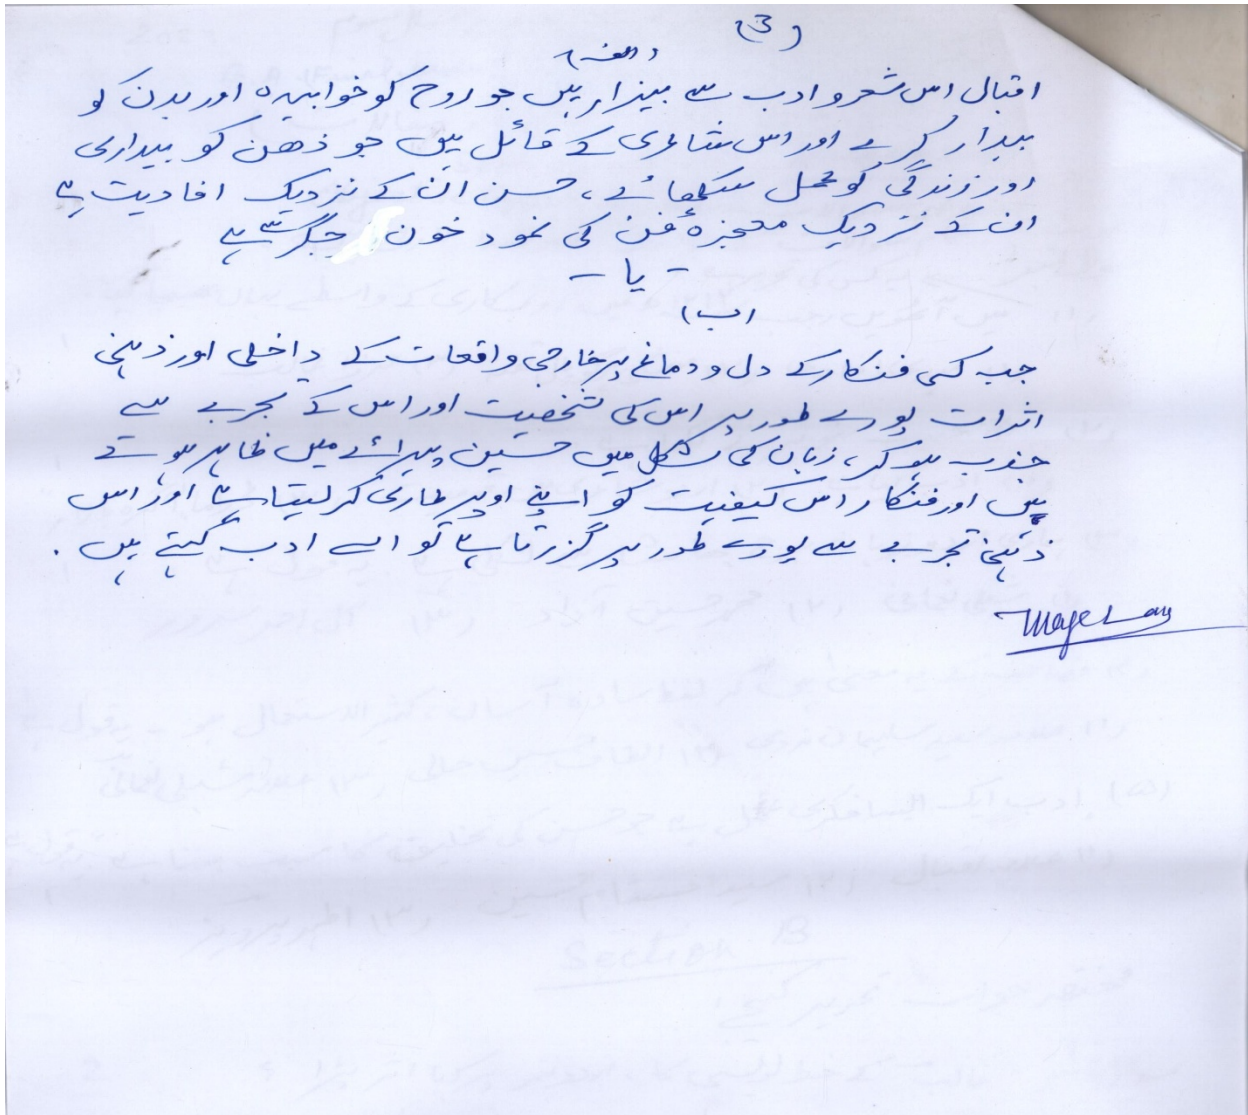 (3)
(الف)
اقبال اس شعر و ادب سے بیزار ہیں جو روح کو خوابیدہ اور بدن کو
بیدار کرے اور اس شاعری کے قائل ہیں جو ذھن کو بیداری
اور زندگی کو عمل سکھائے، حسن ان کے نزدیک افادیت ہے
ان کے نزدیک معجزۂ فن کی نمود خون جگر سے ہے
- یا -
(ب)
جب کسی فنکار کے دل و دماغ پر خارجی واقعات کے داخلی اور ذہنی
اثرات پورے طور پر اس کی شخصیت اور اس کے تجربے سے
جذب ہو کر، زبان کی شکل میں حسین پیرائے میں ظاہر ہوتے
ہیں اور فنکار اس کیفیت کو اپنے اوپر طاری کر لیتا ہے اور اس
ذہنی تجربے سے پورے طور پر گزرتا ہے تو اسے ادب کہتے ہیں .